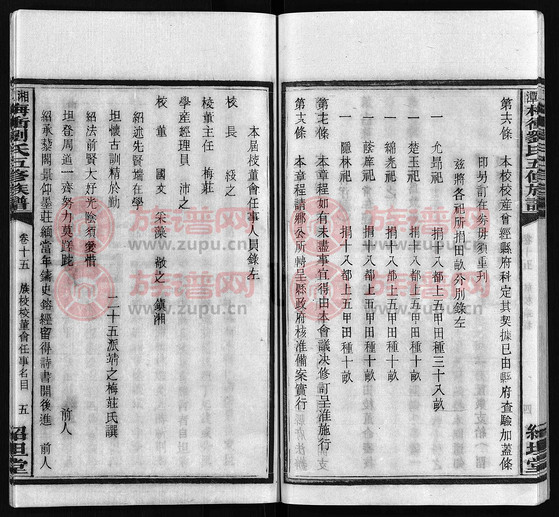 第十六條 本校校產曾經縣府科定其契據已由縣府查驗加蓋條
印另訂在券毋須重刋
茲將各祀所捐田畝分別錄左
一 允昻祀 捐十八都上五甲田種三十八畝
一 楚玉祀 捐十八都上五甲田種十畝
一 綿光祀 捐十八都上五甲田種十畝
一 蔭庠祀 捐十八都上五甲田種十畝
一 隱林祀 捐十八都上五甲田種十畝
第十七條 本章程如有未盡事宜得由本會議決修訂呈准施行
第十八條 本章程請鄉公所轉呈縣政府核准備案實行
紹坦堂
湘
梅衝劉氏五修族譜
卷十五 族校校董會任事名目 五
紹坦堂
本屆校董會任事人員錄左
校長 綫之
校董主任 梅莊
學產經理員 沛之
校董 國文 采藻 敬之 鎮湘
紹述先賢端在學
坦懷古訓精於勤
二十五派靖之梅莊氏譔
紹法前賢大好光陰須愛惜
坦登周道一齊努力莫蹉跎 前人
紹承藜閣景仰墨莊緬當年鑄史鎔經留得詩書開後進 前人
族谱网
www.zupu.cn
族谱网
www.zupu.cn